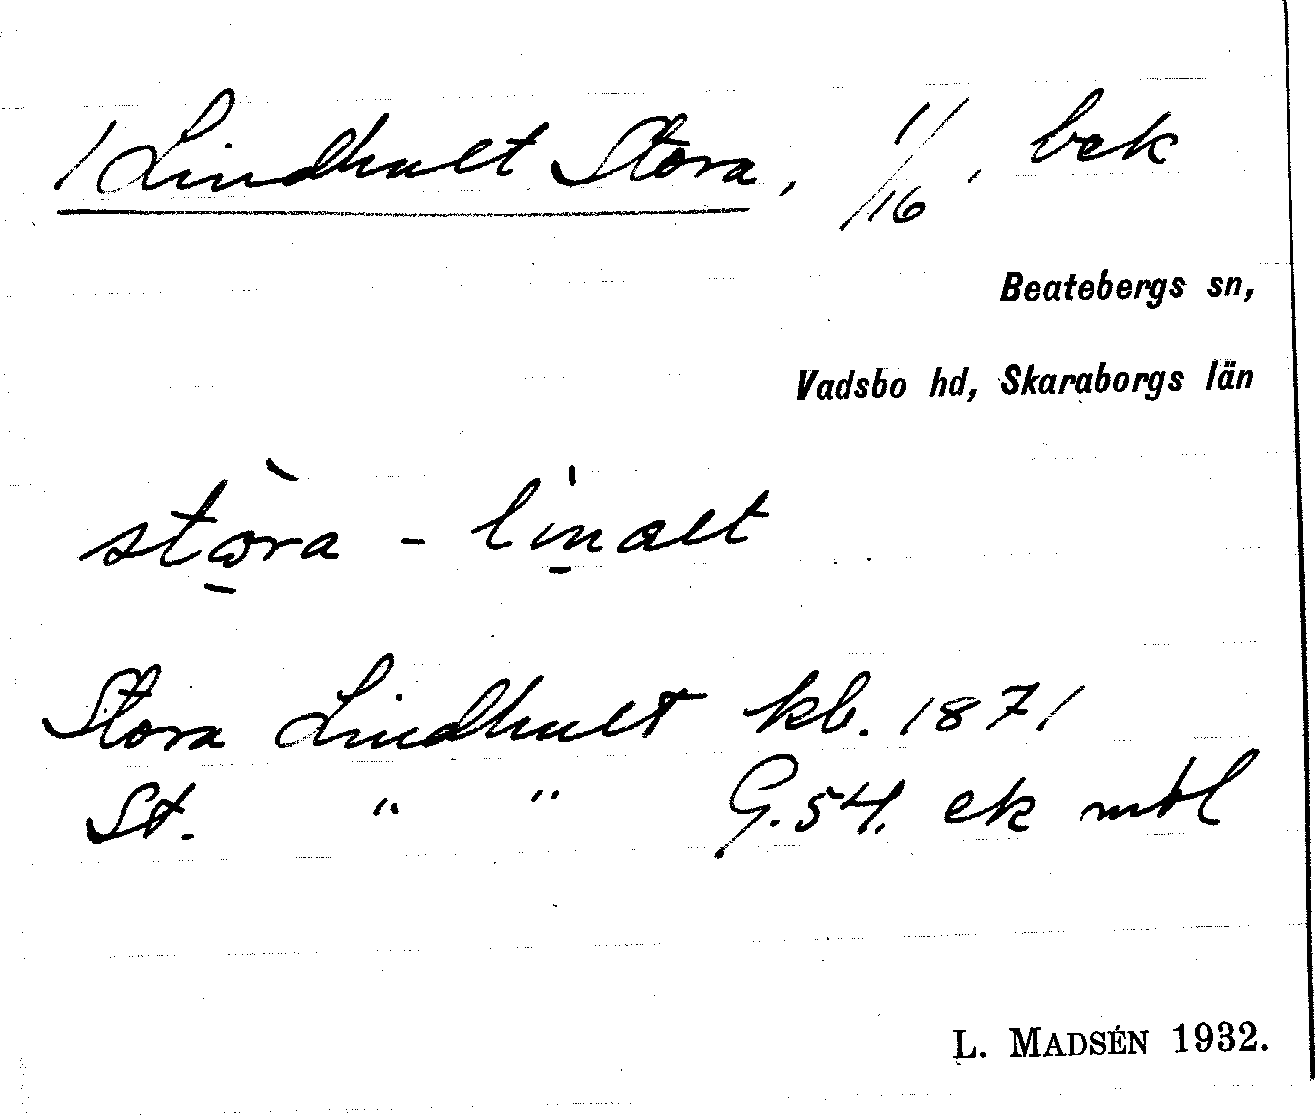 1 Lindhult Stora, 1/16, bek
Beatebergs sn,
Vadsbo hd, Skaraborgs län
stǫ̀ra - lịnalt
Stora Lindhult kb. 1871
St. " " G.54. ek mbl
L. MADSÉN 1932.